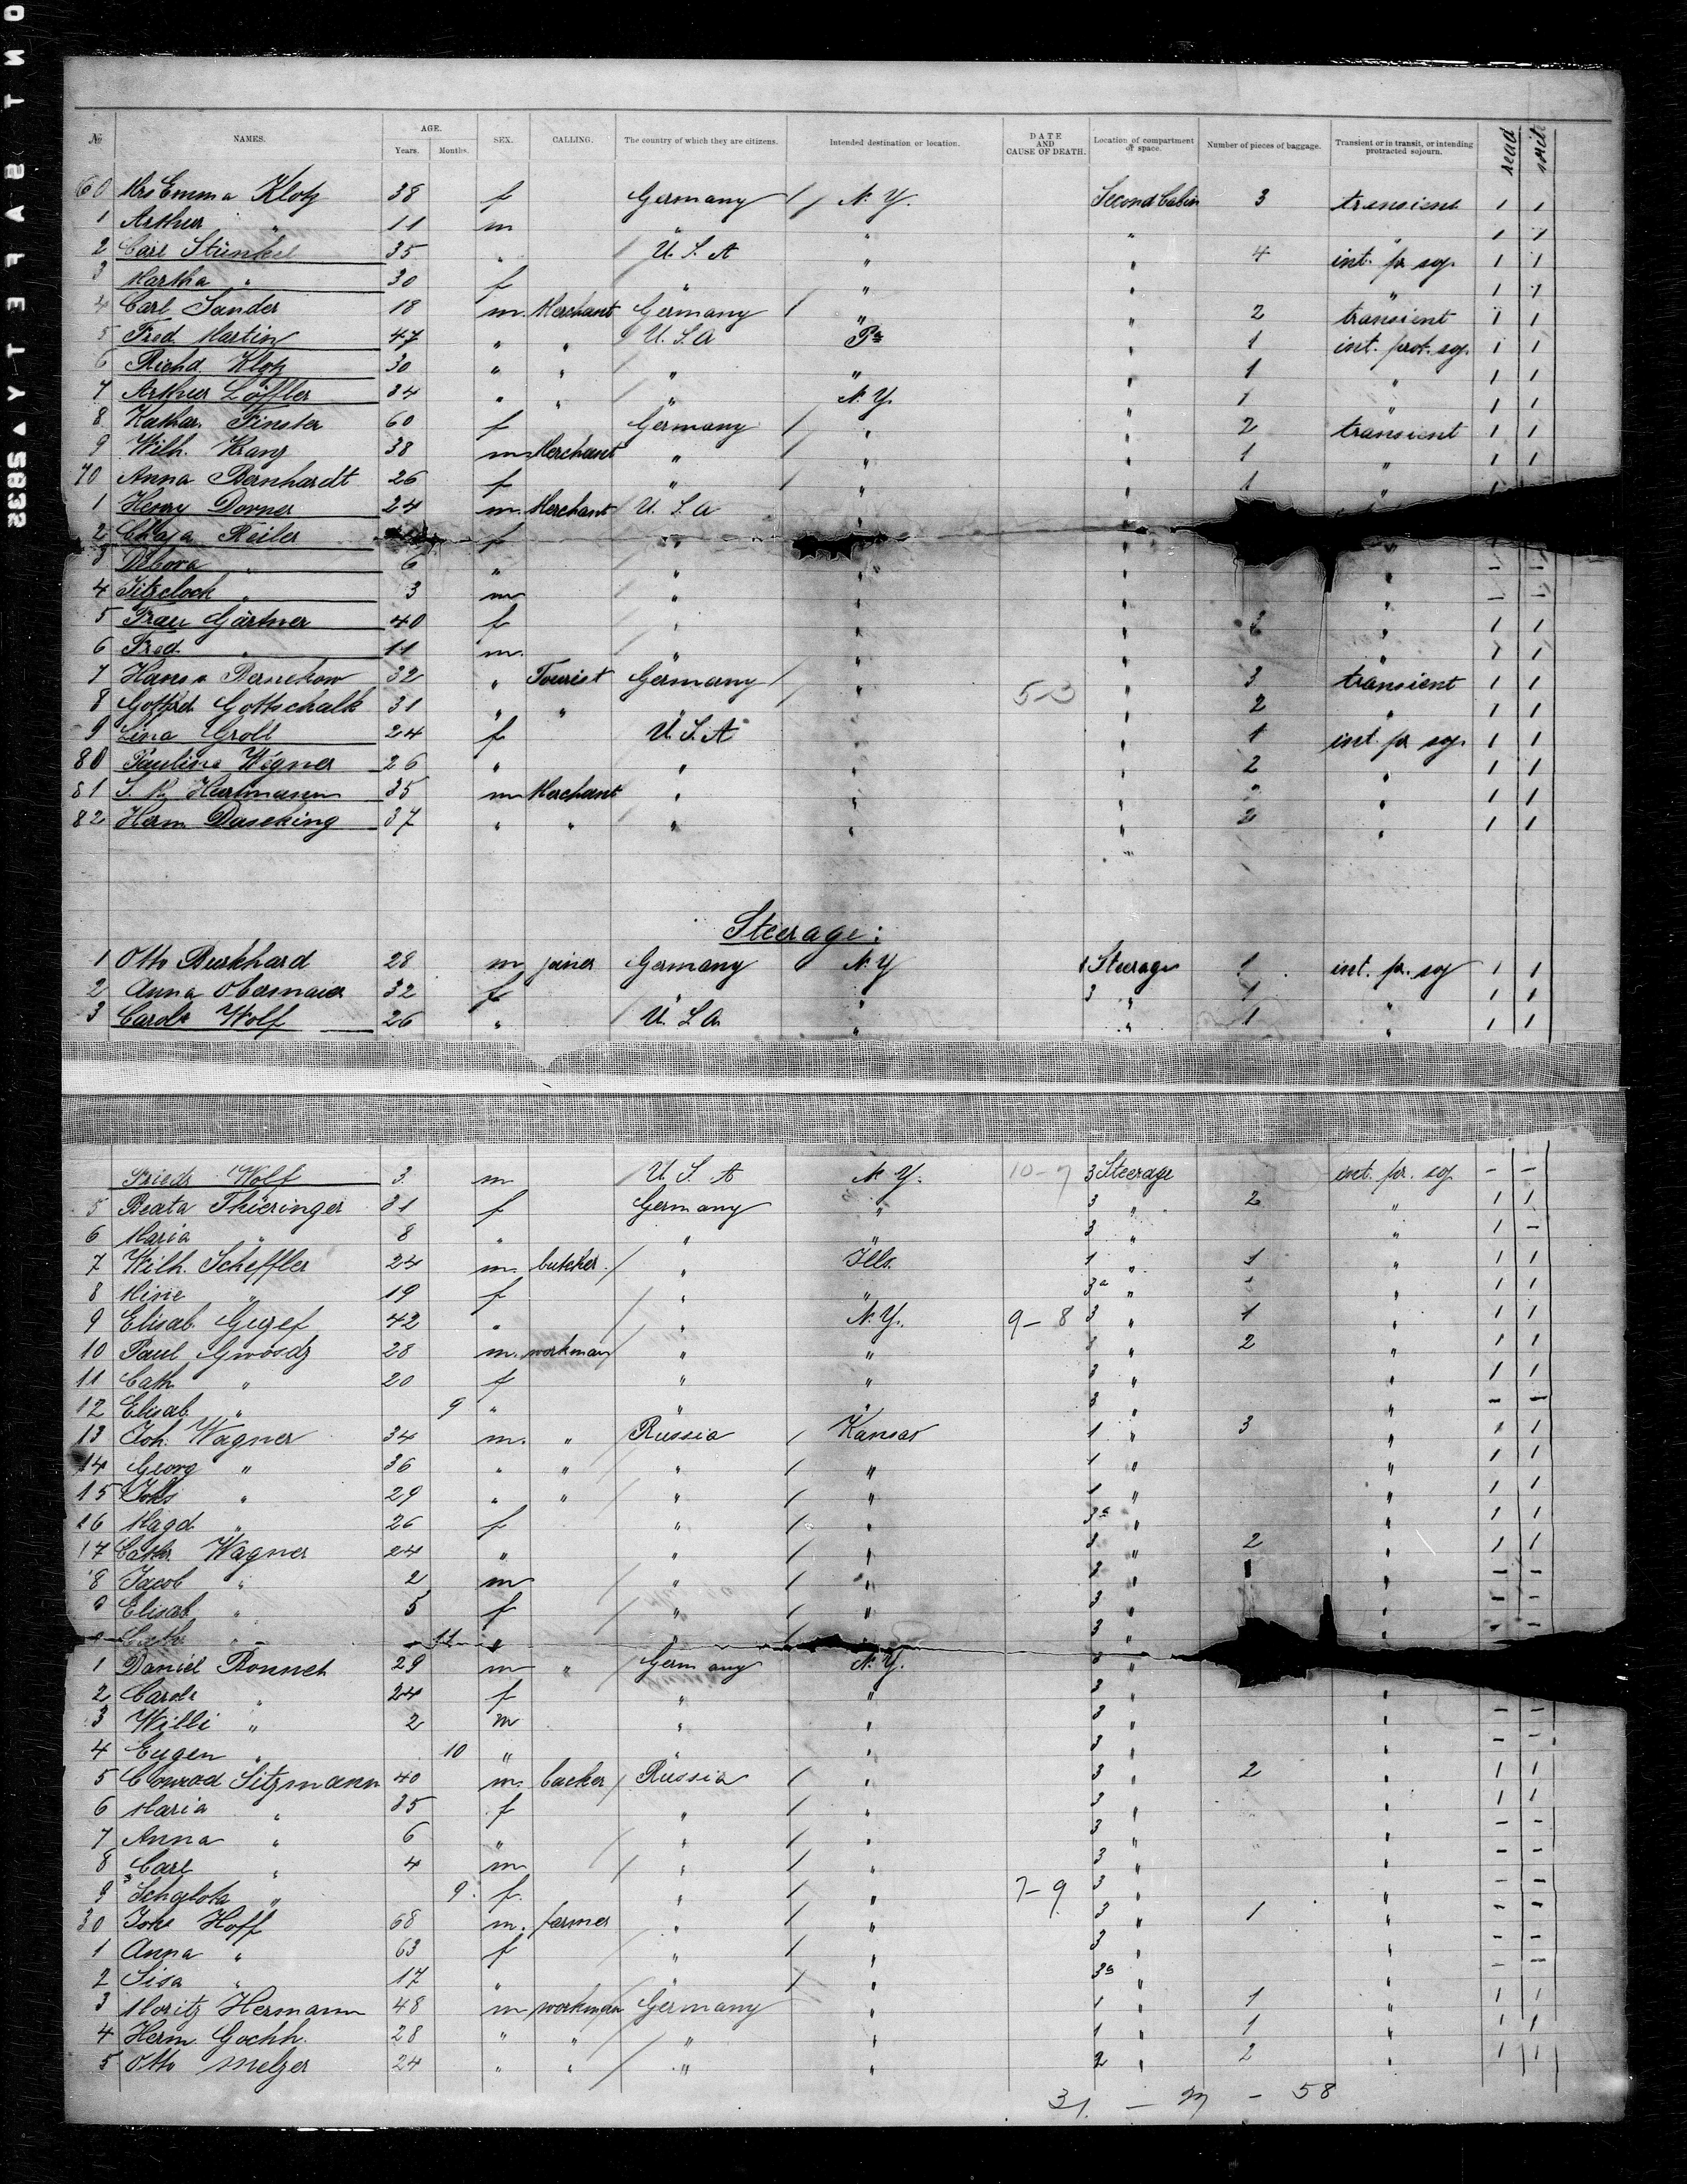 No. NAMES. AGE. Years. Months. SEX. CALLING. The country of which they are citizens. Intended destination or location. DATE AND CAUSE OF DEATH. Location of compartment or space. Number of pieces of baggage. Transient or in transit, or intending protracted sojourn. read write
60 Mrs Emma Klotz 38 f Germany / / N.Y. Second Cabin 3 transient 1 1
1 Arthur " 11 m " " " " 1 1
2 Carl Stünkel 35 " / U.S.A " " 4 int. pr. soj. 1 1
3 Martha " 30 f / " " " " 1 1
4 Carl Sander 18 m. Merchant Germany / " " 2 transient 1 1
5 Fred. Martin 47 " " / U.S.A Pa " 1 int. prot. soj. 1 1
6 Richd. Klotz 30 " " / " " " 1 " 1 1
7 Arthur Löffler 34 " " / " N.Y. " 1 " 1 1
8 Kathar. Finster 60 f Germany / " " 2 transient 1 1
9 Wilh. Kranz 38 m Merchant " / " " 1 " 1 1
70 Anna Bernhardt 26 f " / " " 1 "
1 Henry Dorner 24 m. Merchant / U.S.A " "
2 Chaja Reiler f / " " " "
3 Debora " 6 " / " " " " - -
4 " 3 m / " " " " - -
5 Frau Gärtner 40 f / " " " " 1 1
6 Fred. " 11 m. / " " " " 1 1
7 32 " Tourist Germany / " 5-3 " 3 transient 1 1
8 Gottfrd. Gottschalk 31 " " " / " " 2 " 1 1
9 Lina Groll 24 f / U.S.A " " 1 int. pr soj. 1 1
80 Pauline Wagner 26 " / " " " 2 " 1 1
81 35 m Merchant / " " " " " 1 1
82 Herm Daseking 37 " " / " " " 2 " 1 1
Steerage:
1 Otto Burkhard 28 m joiner Germany N.Y 1 Steerage 1 int. pr. soj 1 1
2 Anna Obermaier 32 f " " 3 " 1 " 1 1
3 Carol. Wolf 26 " U.S.A. " " 1 " 1 1
Friedr Wolf 3 m U.S.A N.Y. 10-7 3 Steerage int. pr. soj - -
5 Beata Thieringer 31 f Germany " 3 " 2 " 1 1
6 Maria " 8 " " " 3 " " 1 -
7 Wilh. Scheffler 24 m. butcher / " Ills. 1 " 1 " 1 1
8 Mine " 19 f / " " 3a " " 1 1
9 Elisab. 42 " / " N.Y. 9-8 3 " 1 " 1 1
10 Paul Gwosdz 28 m. workman / " " 3 " 2 " 1 1
11 Cath " 20 f " " 3 " " 1 1
12 Elisab. " 9 " " " 3 " " - -
13 Joh. Wagner 34 m. " / Russia / Kansas 1 " 3 " 1 1
14 Georg " 36 " " / " / " 1 " " 1 1
15 Johs " 29 " " / " / " 1 " " 1 1
16 Magd " 26 f " / " 3a " " 1 1
17 Cathr Wagner 24 " / " / " 3 " 2 " 1 1
18 Jacob " 2 m / " / " 3 " " - -
9 Elisab " 5 f / " / " 3 " " - -
Cath " 11 " " " 3 " " - -
1 Daniel Bonnet 29 m " / Germany N.Y. 3 "
2 Carol. " 24 f " " 3 " "
3 Willi " 2 m " " 3 " " - -
4 Eugen " 10 " " " 3 " " - -
5 Conrad Sitzmann 40 m. backer / Russia / " 3 " 2 " 1 1
6 Maria " 35 f " / " 3 " " 1 1
7 Anna " 6 " / " / " 3 " " - -
8 Carl " 4 m / " / " 3 " " - -
9 " 9 f " / " 7-9 3 " " - -
30 Johs Hoff 68 m. farmer " / " 3 " 1 " - -
1 Anna " 63 f / " / " 3 " " - -
2 Lisa " 17 " / " / " 3a " " - -
3 Moritz Hermann 48 m workman / Germany " 1 " 1 " 1 1
4 Herm. 28 " " / " " 1 " 1 " 1 1
5 Otto Melzer 24 " " / " " 2 " 2 " 1 1
31 - 27 - 58